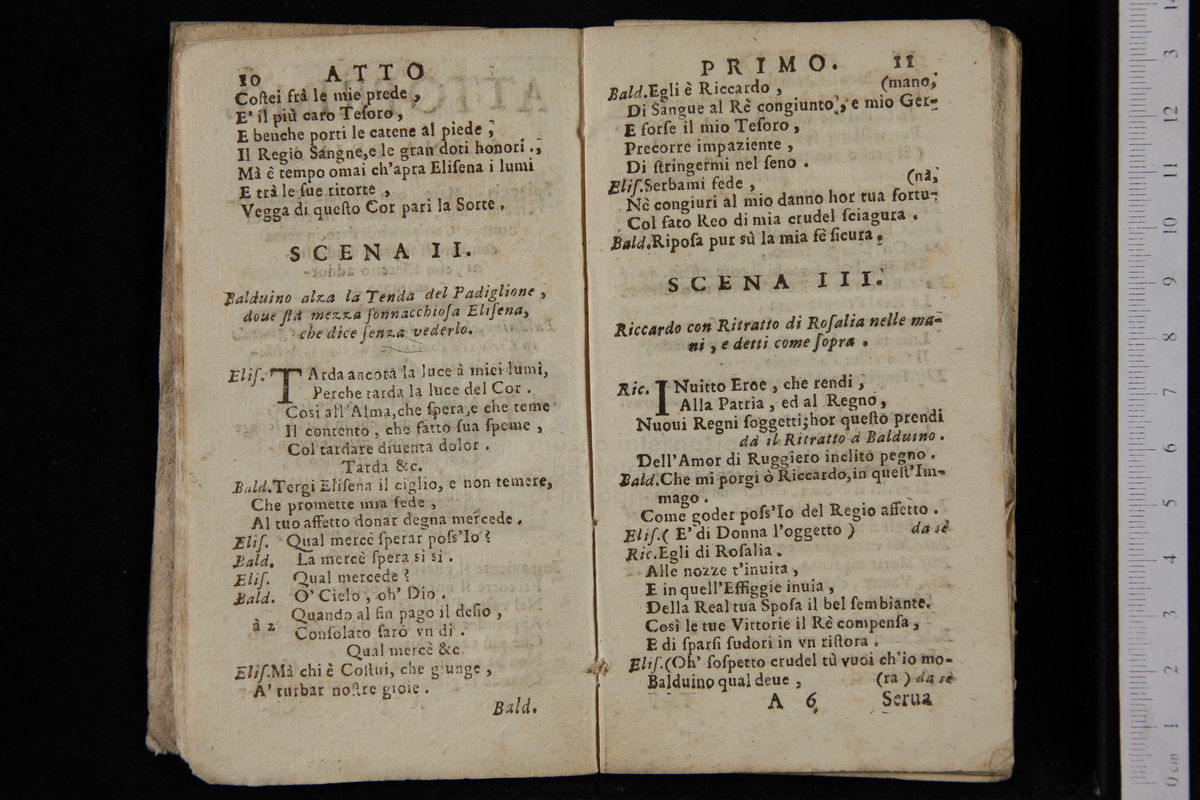 10 ATTO
Coſtei frà le mie prede ,
E' il più caro Teſoro ,
E benche porti le catene al piede ,
Il Regio Sangne,e le gran doti honori .,
Mà è tempo omai ch'apra Eliſena i lumi
E trà le ſue ritorte ,
Vegga di queſto Cor pari la Sorte .
SCENA II.
Balduino alza la Tenda del Padiglione ,
doue ſtà mezza ſonnacchioſa Eliſena,
che dice ſenza vederlo.
Eliſ. TArda ancora la luce à miei lumi,
Perche tarda la luce del Cor .
Così all'Alma,che ſpera,e che teme
Il contento , che fatto ſua ſpeme ,
Col tardare diuenta dolor .
Tarda &c.
Bald.Tergi Eliſena il ciglio, e non temere,
Che promette mia fede ,
Al tuo affetto donar degna mercede .
Eliſ. Qual mercè ſperar poſs'Io ?
Bald. La mercè ſpera sì sì .
Eliſ. Qual mercede ?
Bald. O' Cielo , oh' Dio .
Quando al fin pago il deſio ,
à 2 Conſolato ſarò vn dì .
Qual mercè &c.
Eliſ.Mà chi è Coſtui, che giunge ,
A' turbar noſtre gioie .
Bald.
PRIMO. 11
Bald.Egli è Riccardo , (mano,
Di Sangue al Rè congiunto , e mio Ger-
E forſe il mio Teſoro ,
Precorre impaziente ,
Di ſtringermi nel ſeno .
Eliſ.Serbami fede , (nà,
Nè congiuri al mio danno hor tua fortu-
Col fato Reo di mia crudel ſciagura .
Bald.Ripoſa pur sù la mia fè ſicura .
SCENA III.
Riccardo con Ritratto di Roſalia nelle ma-
ni , e detti come ſopra .
Ric. INuitto Eroe , che rendi ,
Alla Patria , ed al Regno ,
Nuoui Regni ſoggetti;hor queſto prendi
dà il Ritratto à Balduino .
Dell'Amor di Ruggiero inclito pegno .
Bald.Che mi porgi ò Riccardo,in queſt'Im-
mago .
Come goder poſs'Io del Regio affetto .
Eliſ.( E' di Donna l'oggetto ) da sè
Ric.Egli di Roſalia .
Alle nozze t'inuita ,
E in quell'Effiggie inuia ,
Della Real tua Spoſa il bel ſembiante.
Così le tue Vittorie il Rè compenſa ,
E di ſparſi ſudori in vn riſtora .
Eliſ.(Oh' ſoſpetto crudel tù vuoi ch'io mo-
Balduino qual deue , (ra ) da sè
A 6 Serua
0 cm 1 2 3 4 5 6 7 8 9 10 11 12 13 14